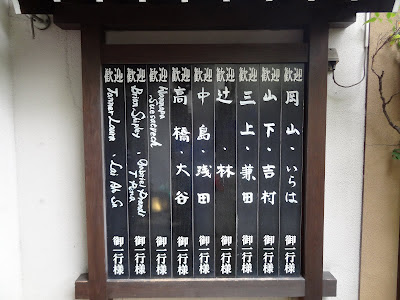 歓迎 岡山・いろは 御一行様
歓迎 山下・吉村 御一行様
歓迎 三上・兼田 御一行様
歓迎 辻・林 御一行様
歓迎 中島・浅田 御一行様
歓迎 高橋・大谷 御一行様
歓迎 御一行様
歓迎 Brian Shipley ・ Gabriel 御一行様
歓迎 Tanner Laura ・ Lai Ah 御一行様